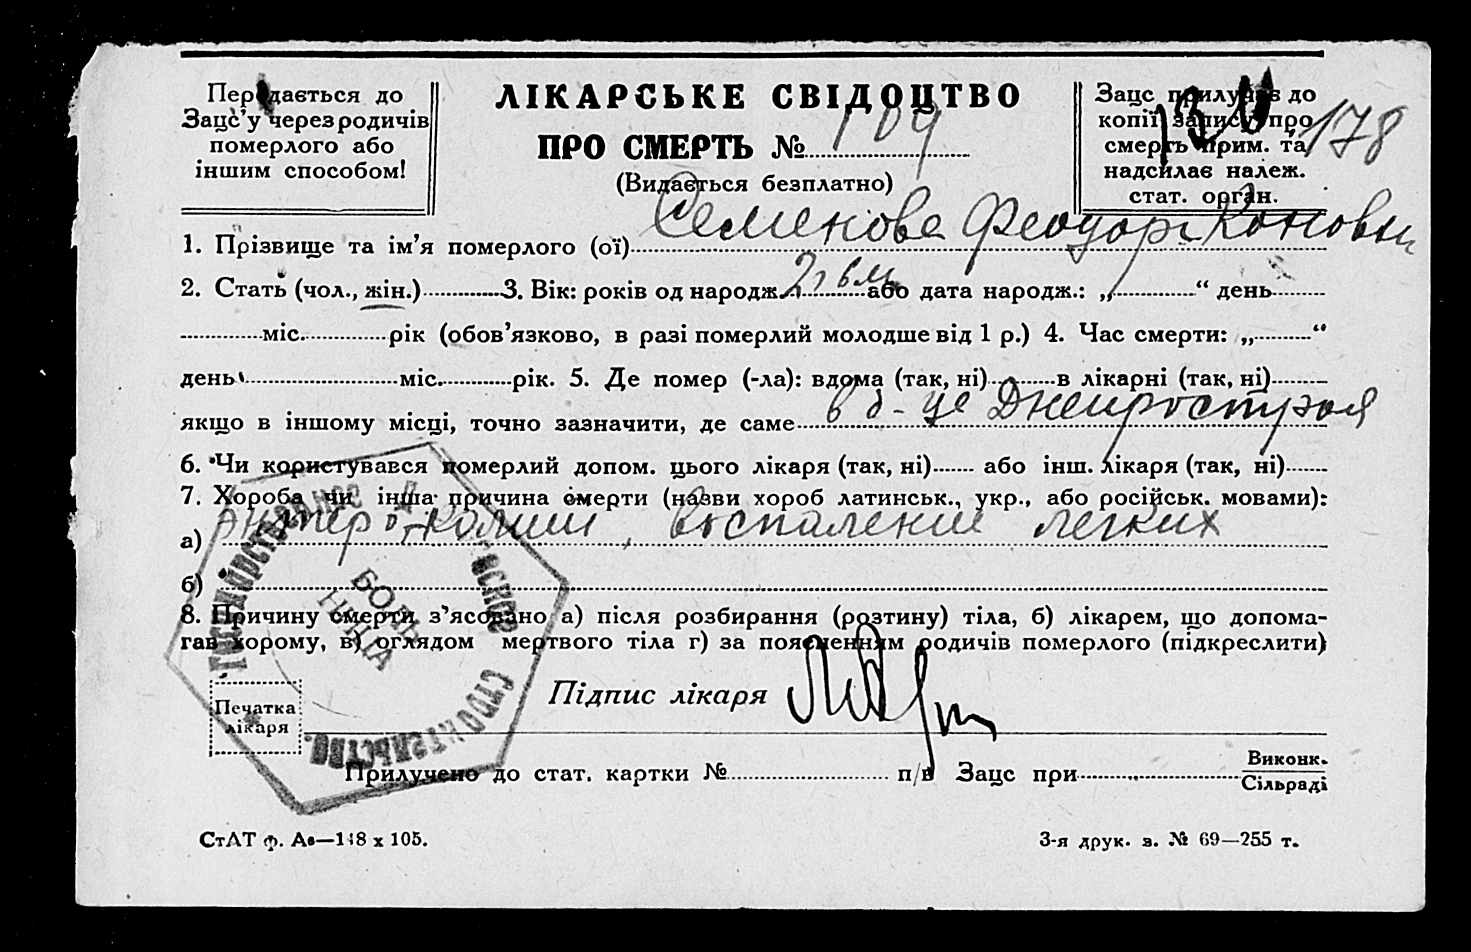 Передається до
Зацс'у через родичів
померлого або
іншим способом!
ЛІКАРСЬКЕ СВІДОЦТВО
ПРО СМЕРТЬ № 109
(Видається безплатно)
Зацс прилучає до
копії запису про
смерть прим. та
надсилає належ.
стат. орган.
130
178
1. Прізвище та ім'я померлого (ої) Семенова
2. Стать (чол., жін.) 3. Вік: років од народж. 2г 6 м. або дата народж.: „ “ день
міс. рік (обов'язково, в разі померлий молодше від 1 р.) 4. Час смерти: „ “
день міс. рік. 5. Де помер (-ла): вдома (так, ні) в лікарні (так, ні)
якщо в іншому місці, точно зазначити, де саме в б-це Днепростроя
6. Чи користувався померлий допом. цього лікаря (так, ні) або інш. лікаря (так, ні)
7. Хороба чи інша причина смерти (назви хороб латинськ., укр., або російськ. мовами):
а) Энтеро-колит, воспаление легких
б)
8. Причину смерти з'ясовано а) після розбирання (розтину) тіла, б) лікарем, що допома-
гав хорому, в) оглядом мертвого тіла г) за поясненням родичів померлого (підкреслити)
Печатка
лікаря
Підпис лікаря
БОЛЬ
НИЦА
Строительство.
Прилучено до стат. картки № п/в Зацс при Виконк.
Сільраді
СтАТ ф. Ав—148 х 105.
3-я друк. з. № 69—255 т.